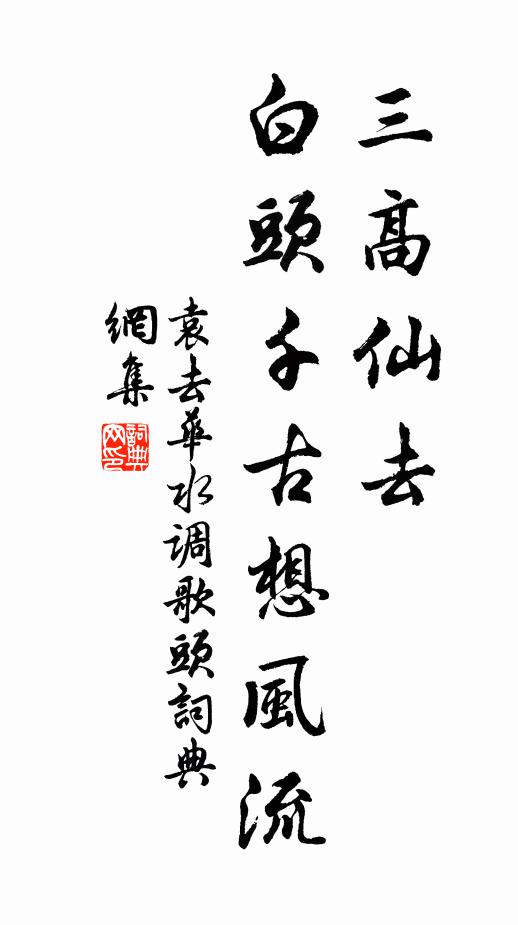 三高仙去
白頭千古想風流
袁去華水调歌頭詞典
網集
詞典
网印